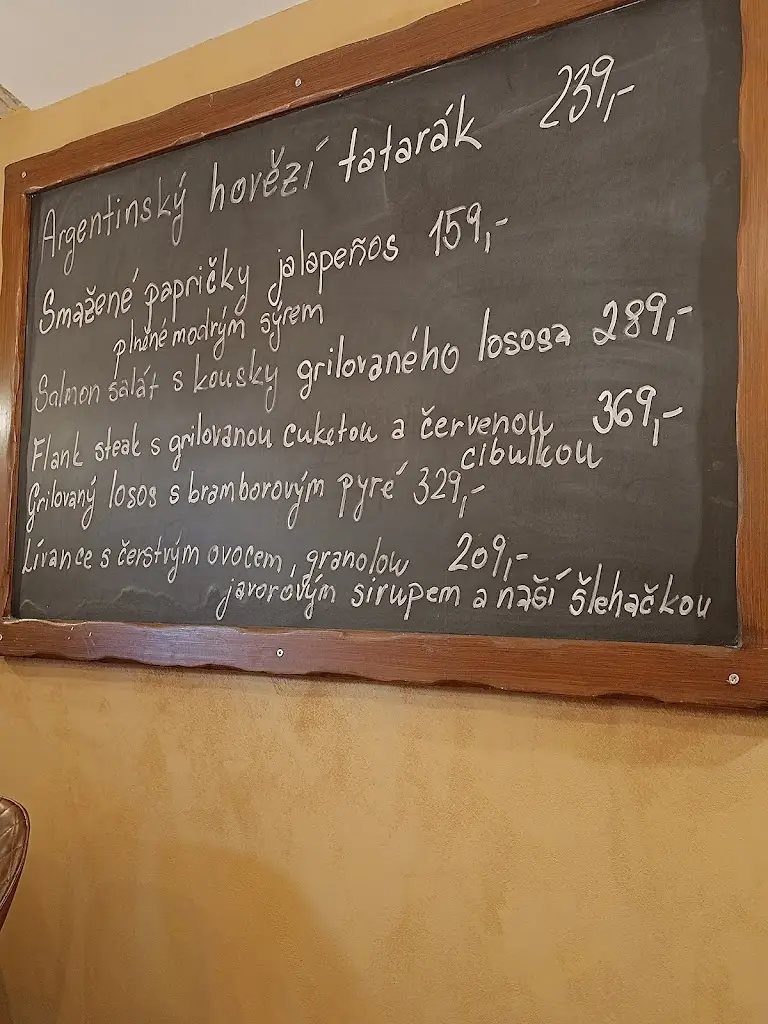 Argentinský hovězí tatarák 239,-
Smažené papričky jalapeños 159,-
plněné modrým sýrem
Salmon salát s kousky grilovaného lososa 289,-
Flank steak s grilovanou cuketou a červenou 369,-
cibulkou
Grilovaný losos s bramborovým pyré 329,-
Lívance s čerstvým ovocem, granolou 209,-
javorovým sirupem a naší šlehačkou